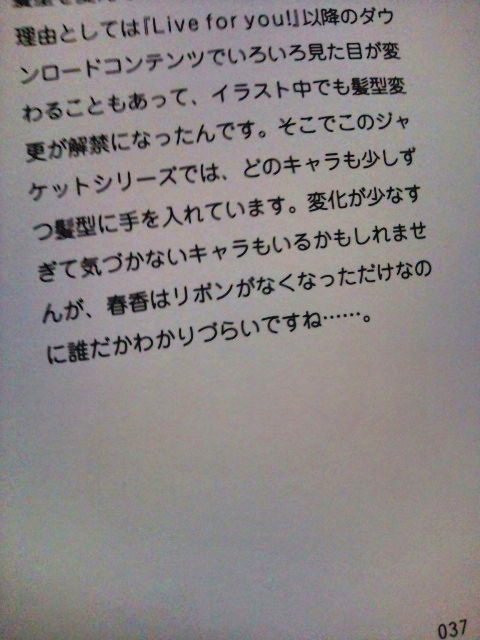 理由としては『Live for you!』以降のダウ
ンロードコンテンツでいろいろ見た目が変
わることもあって、イラスト中でも髪型変
更が解禁になったんです。そこでこのジャ
ケットシリーズでは、どのキャラも少しず
つ髪型に手を入れています。変化が少なす
ぎて気づかないキャラもいるかもしれませ
んが、春香はリボンがなくなっただけなの
に誰だかわかりづらいですね……。
037